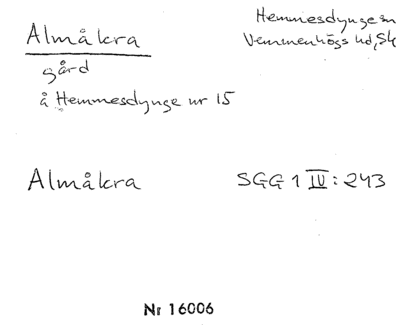 Almåkra
Hemmesdynge sn
Vemmenhögs hd, Sk
gård
å Hemmesdynge nr 15
Almåkra
SGG 1 IV: 243
Nr 16006